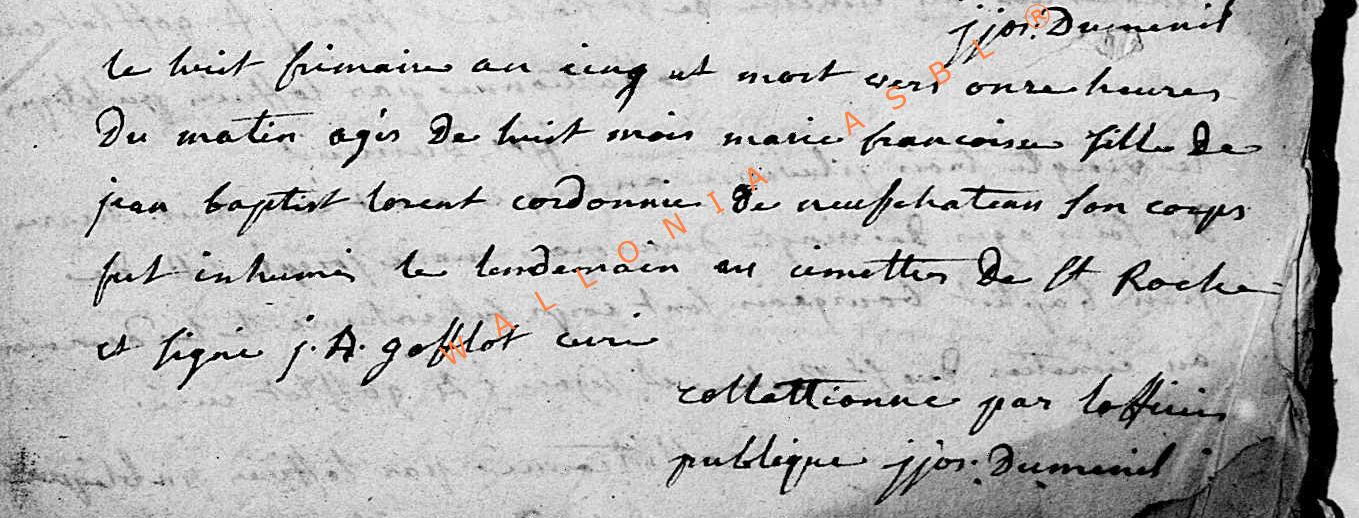 jjos: Dumenil
le huit frimaire an cinq et mort vers onze heures
Du matin agés De huit mois marie francoise fille De
jean baptist lorent cordonnie de neufchateau son corps
fut inhumés le lendemain au cimettier De St Roche
et signé j. A. gofflot curé
collattionné par loffficier
publique jjos: Dumenil
WALLONIA ASBL®